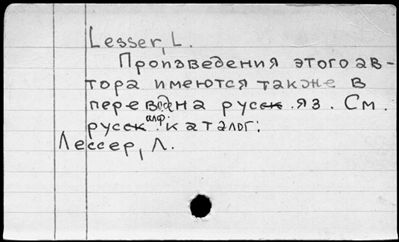 Lesser, L.
Произведения этого ав-
тора имеются также в
перев. на русск. яз. См.
русск. алф. каталог:
Лессер, Л.